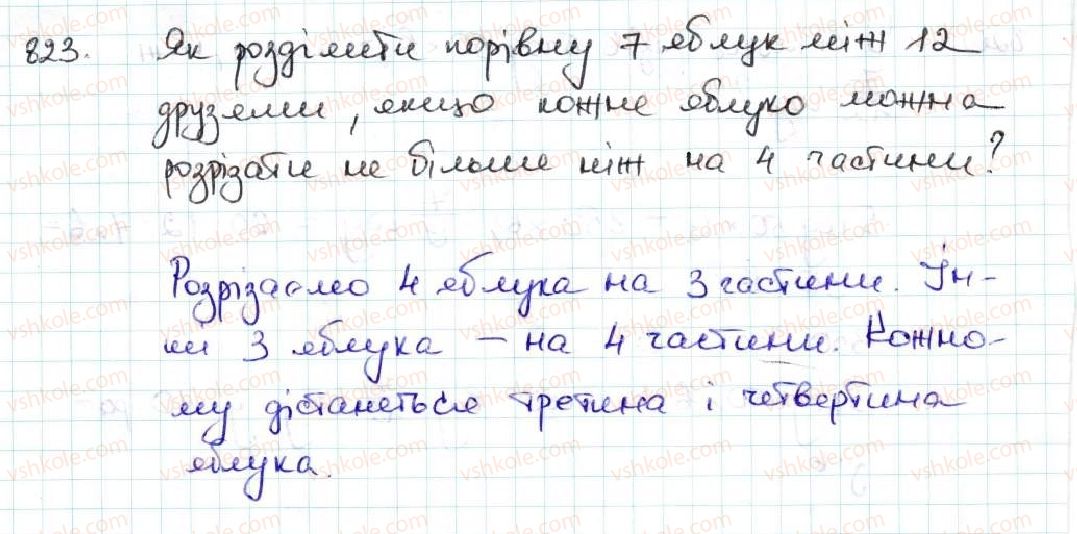 823. Як розділити порівну 7 яблук між 12
друзями, якщо кожне яблуко можна
розрізати не більше ніж на 4 частини?
Розрізаємо 4 яблука на 3 частини. Ін-
ші 3 яблука – на 4 частини. Кожно-
му дістанеться третина і четвертина
яблука.
vshkole.com